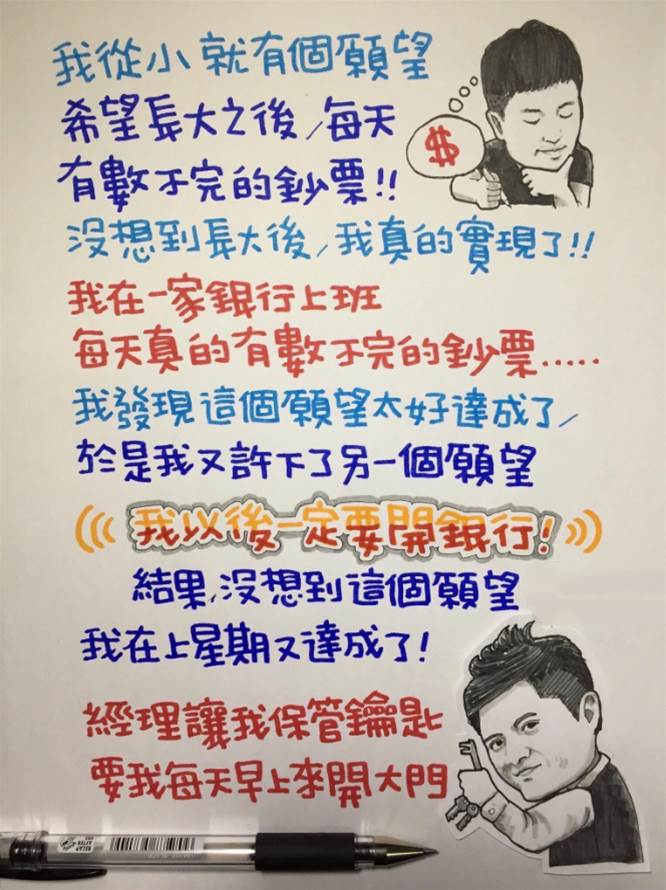 我從小就有個願望
希望長大之後,每天
有數不完的鈔票!!
$
沒想到長大後,我真的實現了!!
我在一家銀行上班
每天真的有數不完的鈔票.....
我發現這個願望太好達成了,
於是我又許下了另一個願望
((( 我以後一定要開銀行! )))
結果,沒想到這個願望
我在上星期又達成了!
經理讓我保管鑰匙
要我每天早上來開大門